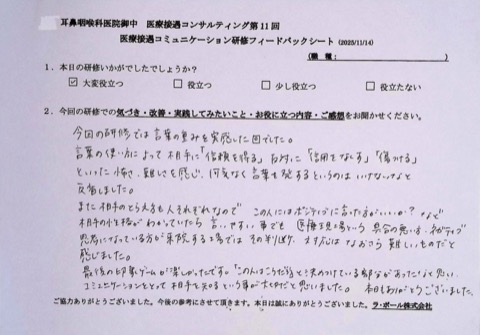 耳鼻咽喉科医院御中 医療接遇コンサルティング第11回
医療接遇コミュニケーション研修フィードバックシート(2025/11/14)
(職種: )
1.本日の研修いかがでしたでしょうか?
☑ 大変役立つ □ 役立つ □ 少し役立つ □ 役立たない
2.今回の研修での気づき・改善・実践してみたいこと・お役に立つ内容・ご感想をお聞かせください。
今回の研修では言葉の重みを実感した回でした。
言葉の使い方によって相手に「信頼を得る」反対に「信用をなくす」「傷つける」
といった怖さ、難しさを感じ、何気なく言葉を発するというのはいけないなと
反省しました。
また相手のとらえ方も人それぞれなので この人にはポジティブに言った方がいいか?など
相手の性格がわかっていたら言いやすい事でも 医療現場という具合の悪い方・ネガティブ
思考になっている方が来院する工場ではその判断、対応はなおさら難しいものだと
感じました。
最後の印象ゲームが楽しかったです。「この人はこうだろう」と決めつけている部分があったなと思い、
コミュニケーションをとって相手を知るという事が大切だと思いました。本日もありがとうございました。
ご協力ありがとうございました。今後の参考にさせて頂きます。本日は誠にありがとうございました。 ラ・ポール株式会社